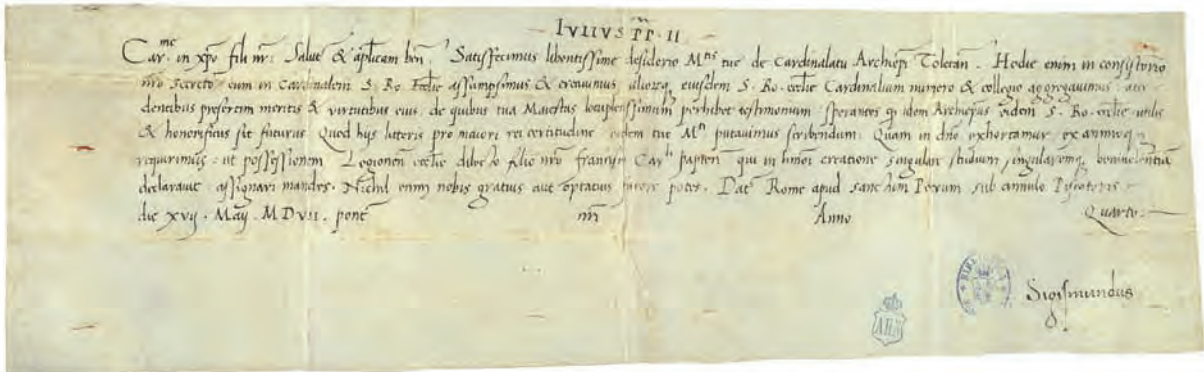 IVLIVS PP. II
Car.me in xpo fili nr. Salutē & aplicam ben. Satisfecimus libentissime desiderio M.tis tue de Cardinalatu Archiepi Toletan. Hodie enim in consistorio
nro secreto eum in Cardinalem S. Ro. Ecclie assumpsimus & creavimus aliorq. eiusdem S. Ro. ecclie Cardinalium numero & collegio aggregavimus: acce
dentibus presertim meritis & virtutibus eius, de quibus tua Maiestas locupletissimum perhibet testimonium: sperantes q idem Archiepus eidem S. Ro. ecclie utilis
& honorificus sit futurus. Quod hijs litteris pro maiori rei certitudine eidem tue M.ti putavimus scribendum: Quam in dno exhortamur, ex animoq
requirimus: ut possessionem Legionen ecclie dilecto filio nro Car.li papien qui in huiusmoi creatione singular studium, singularemq benivolentiā
declaravit assignari mandes. Nichil enim nobis gratius aut optatius facere potes. Dat. Rome apud sanctum Petrum sub annulo Piscatoris
die xvij. Maij. M D VII. pont nri Anno Quarto.
Sigismundus
AHN